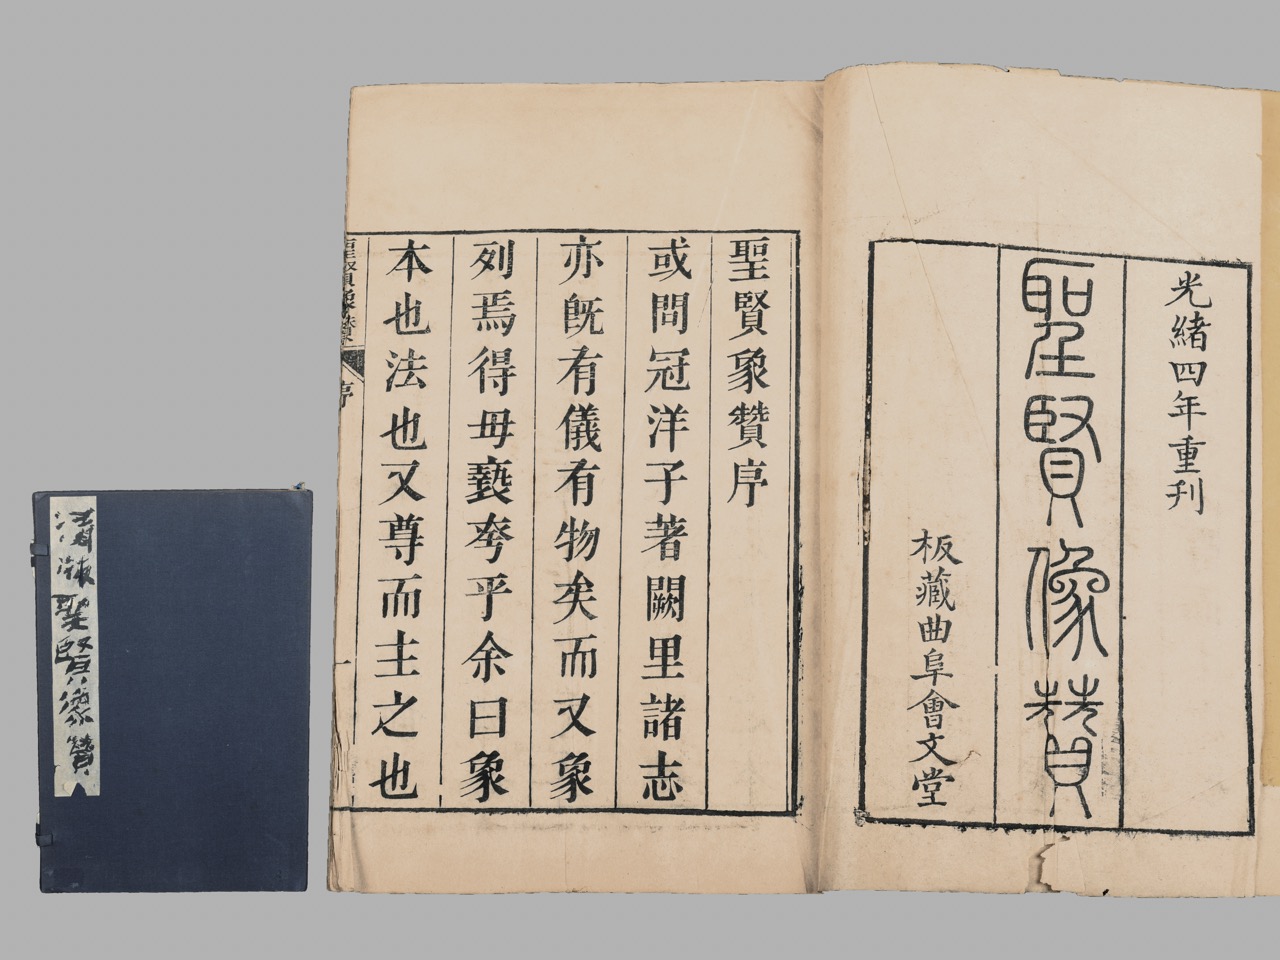 光緒四年重刊
聖賢像贊
板藏曲阜會文堂
聖賢象贊序
或問冠洋子著闕里諸志
亦旣有儀有物矣而又象
列焉得毋褻夸乎余曰象
本也法也又尊而主之也
聖賢象贊
序
一
聖賢像贊